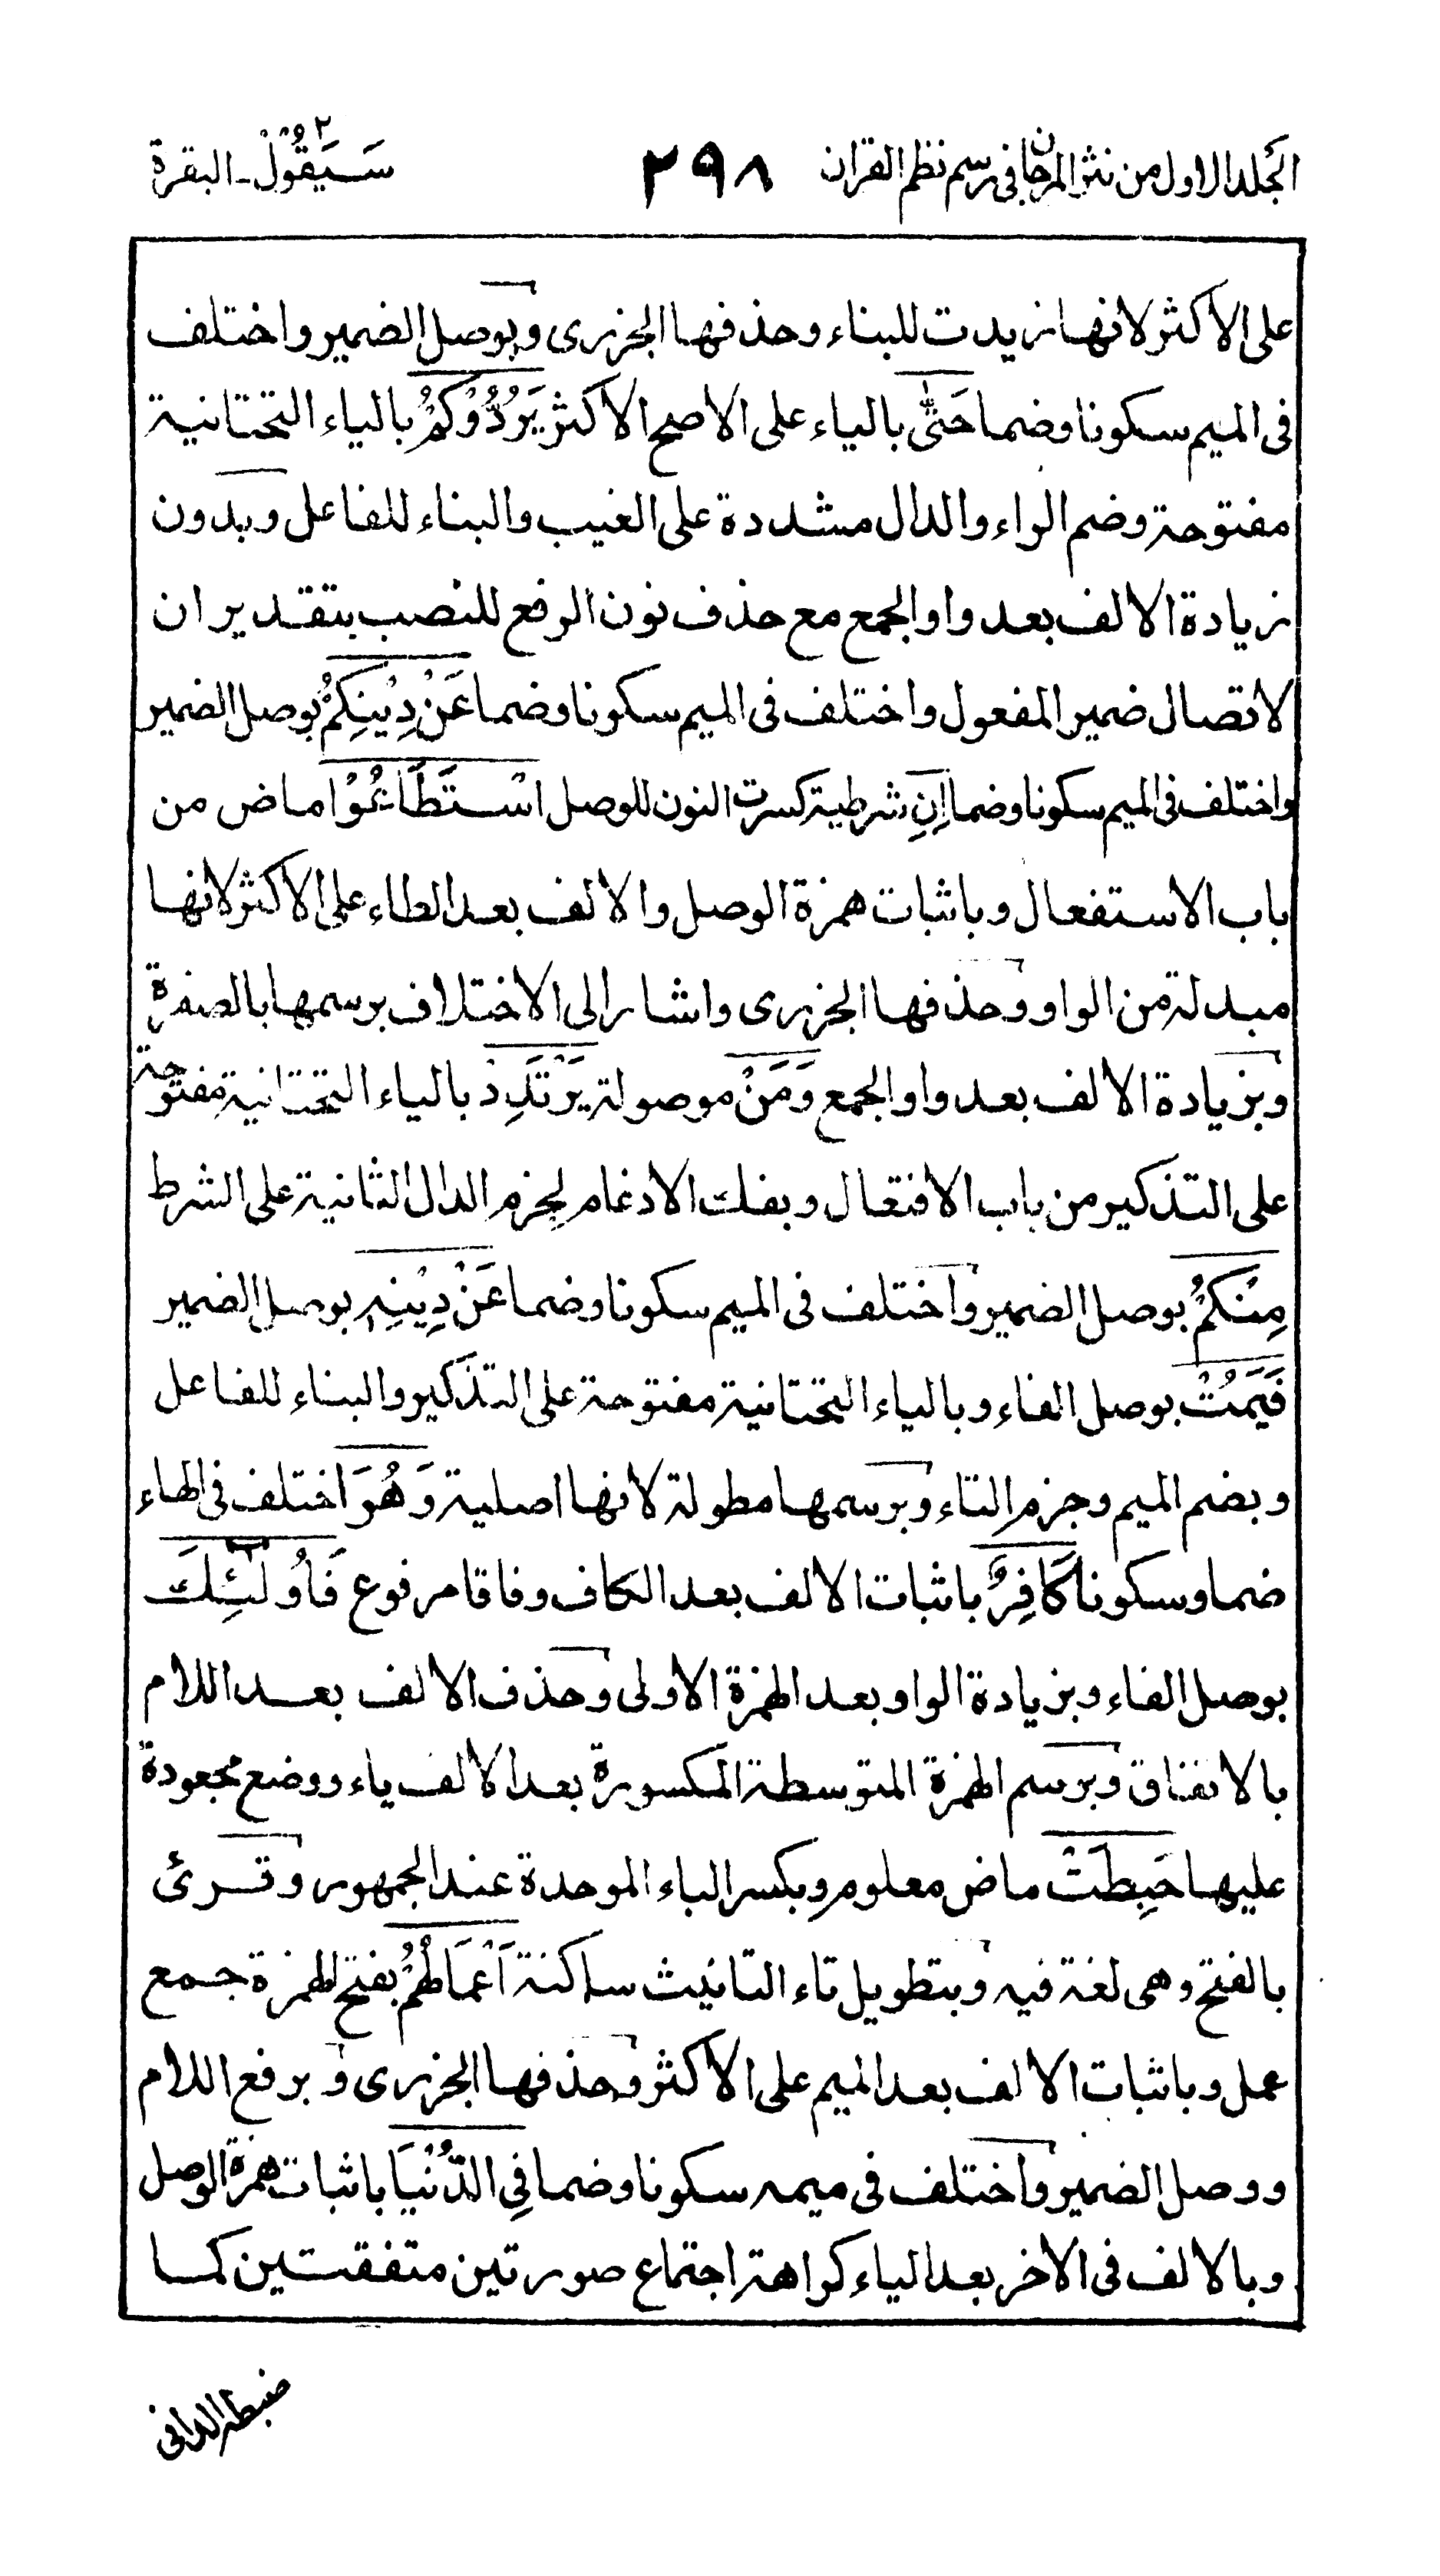 الجلد الاول من نثر المرجان فی رسم نظم القران ٢٩٨ سَيَقُوْلُ ٢ - البقرة
علی الاکثر لانها زیدت للبناء وحذفها الجزری وبوصل الضمیر واختلف
فی المیم سکونا وضما حَتّٰی بالیاء علی الاصح الاکثر یَرُدُّوْکُمْ بالیاء التحتانیة
مفتوحة وضم الراء والدال مشددة علی الغیب والبناء للفاعل وبدون
زیادة الالف بعد واو الجمع مع حذف نون الرفع للنصب بتقدیر ان
لاتصال ضمیر المفعول واختلف فی المیم سکونا وضما عَنْ دِیْنِکُمْ بوصل الضمیر
واختلف فی المیم سکونا وضما اِنِ شرطیة کسرت النون للوصل اسْتَطَاعُوْا ماض من
باب الاستفعال وباثبات همزة الوصل والالف بعد الطاء علی الاکثر لانها
مبدلة من الواو وحذفها الجزری واشار الی الاختلاف برسمها بالصفرة
وبزیادة الالف بعد واو الجمع وَمَنْ موصولة یَرْتَدِدْ بالیاء التحتانیة مفتوحة
علی التذکیر من باب الافتعال وبفك الادغام لجزم الدال الثانیة علی الشرط
مِنْکُمْ بوصل الضمیر واختلف فی المیم سکونا وضما عَنْ دِیْنِهٖ بوصل الضمیر
فَیَمُتْ بوصل الفاء وبالیاء التحتانیة مفتوحة علی التذکیر والبناء للفاعل
وبضم المیم وجزم التاء وبرسمها مطولة لانها اصلیة وَهُوَ اختلف فی الهاء
ضما وسکونا کَافِرٌ باثبات الالف بعد الکاف وفاقا مرفوع فَاُولٰٓئِكَ
بوصل الفاء وبزیادة الواو بعد الهمزة الاولی وحذف الالف بعد اللام
بالاتفاق وبرسم الهمزة المتوسطة المکسورة بعد الالف یاء ووضع مجعودة
علیها حَبِطَتْ ماض معلوم وبکسر الباء الموحدة عند الجمهور وقرئ
بالفتح وهی لغة فیه وبتطویل تاء التانیث ساکنة اَعْمَالُهُمْ بفتح الهمزة جمع
عمل وباثبات الالف بعد المیم علی الاکثر وحذفها الجزری وبرفع اللام
ووصل الضمیر واختلف فی میمه سکونا وضما فِی الدُّنْیَا باثبات همزة الوصل
وبالالف فی الاخر بعد الیاء کراهة اجتماع صورتین متفقتین کما
ضبطه الدانی